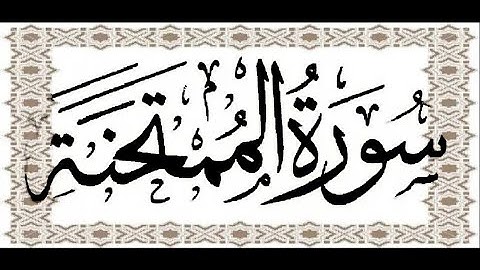 سُورَةُ المُمتَحنَةِ